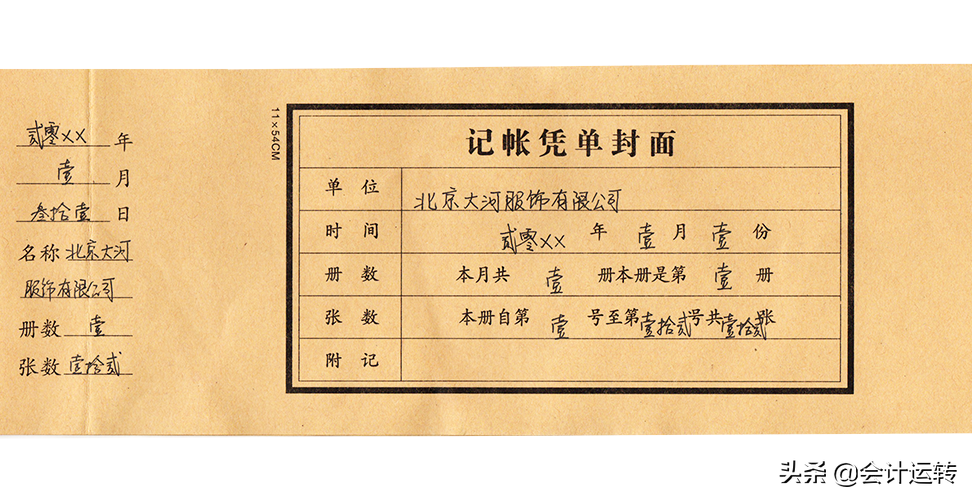 贰零××年
壹月
叁拾壹日
名称北京大河
服饰有限公司
册数壹
张数壹拾贰
11×54CM
记帐凭单封面
单位 北京大河服饰有限公司
时间 贰零××年壹月壹份
册数 本月共壹册本册是第壹册
张数 本册自第壹号至第壹拾贰号共壹拾贰张
附记
头条 @会计运转